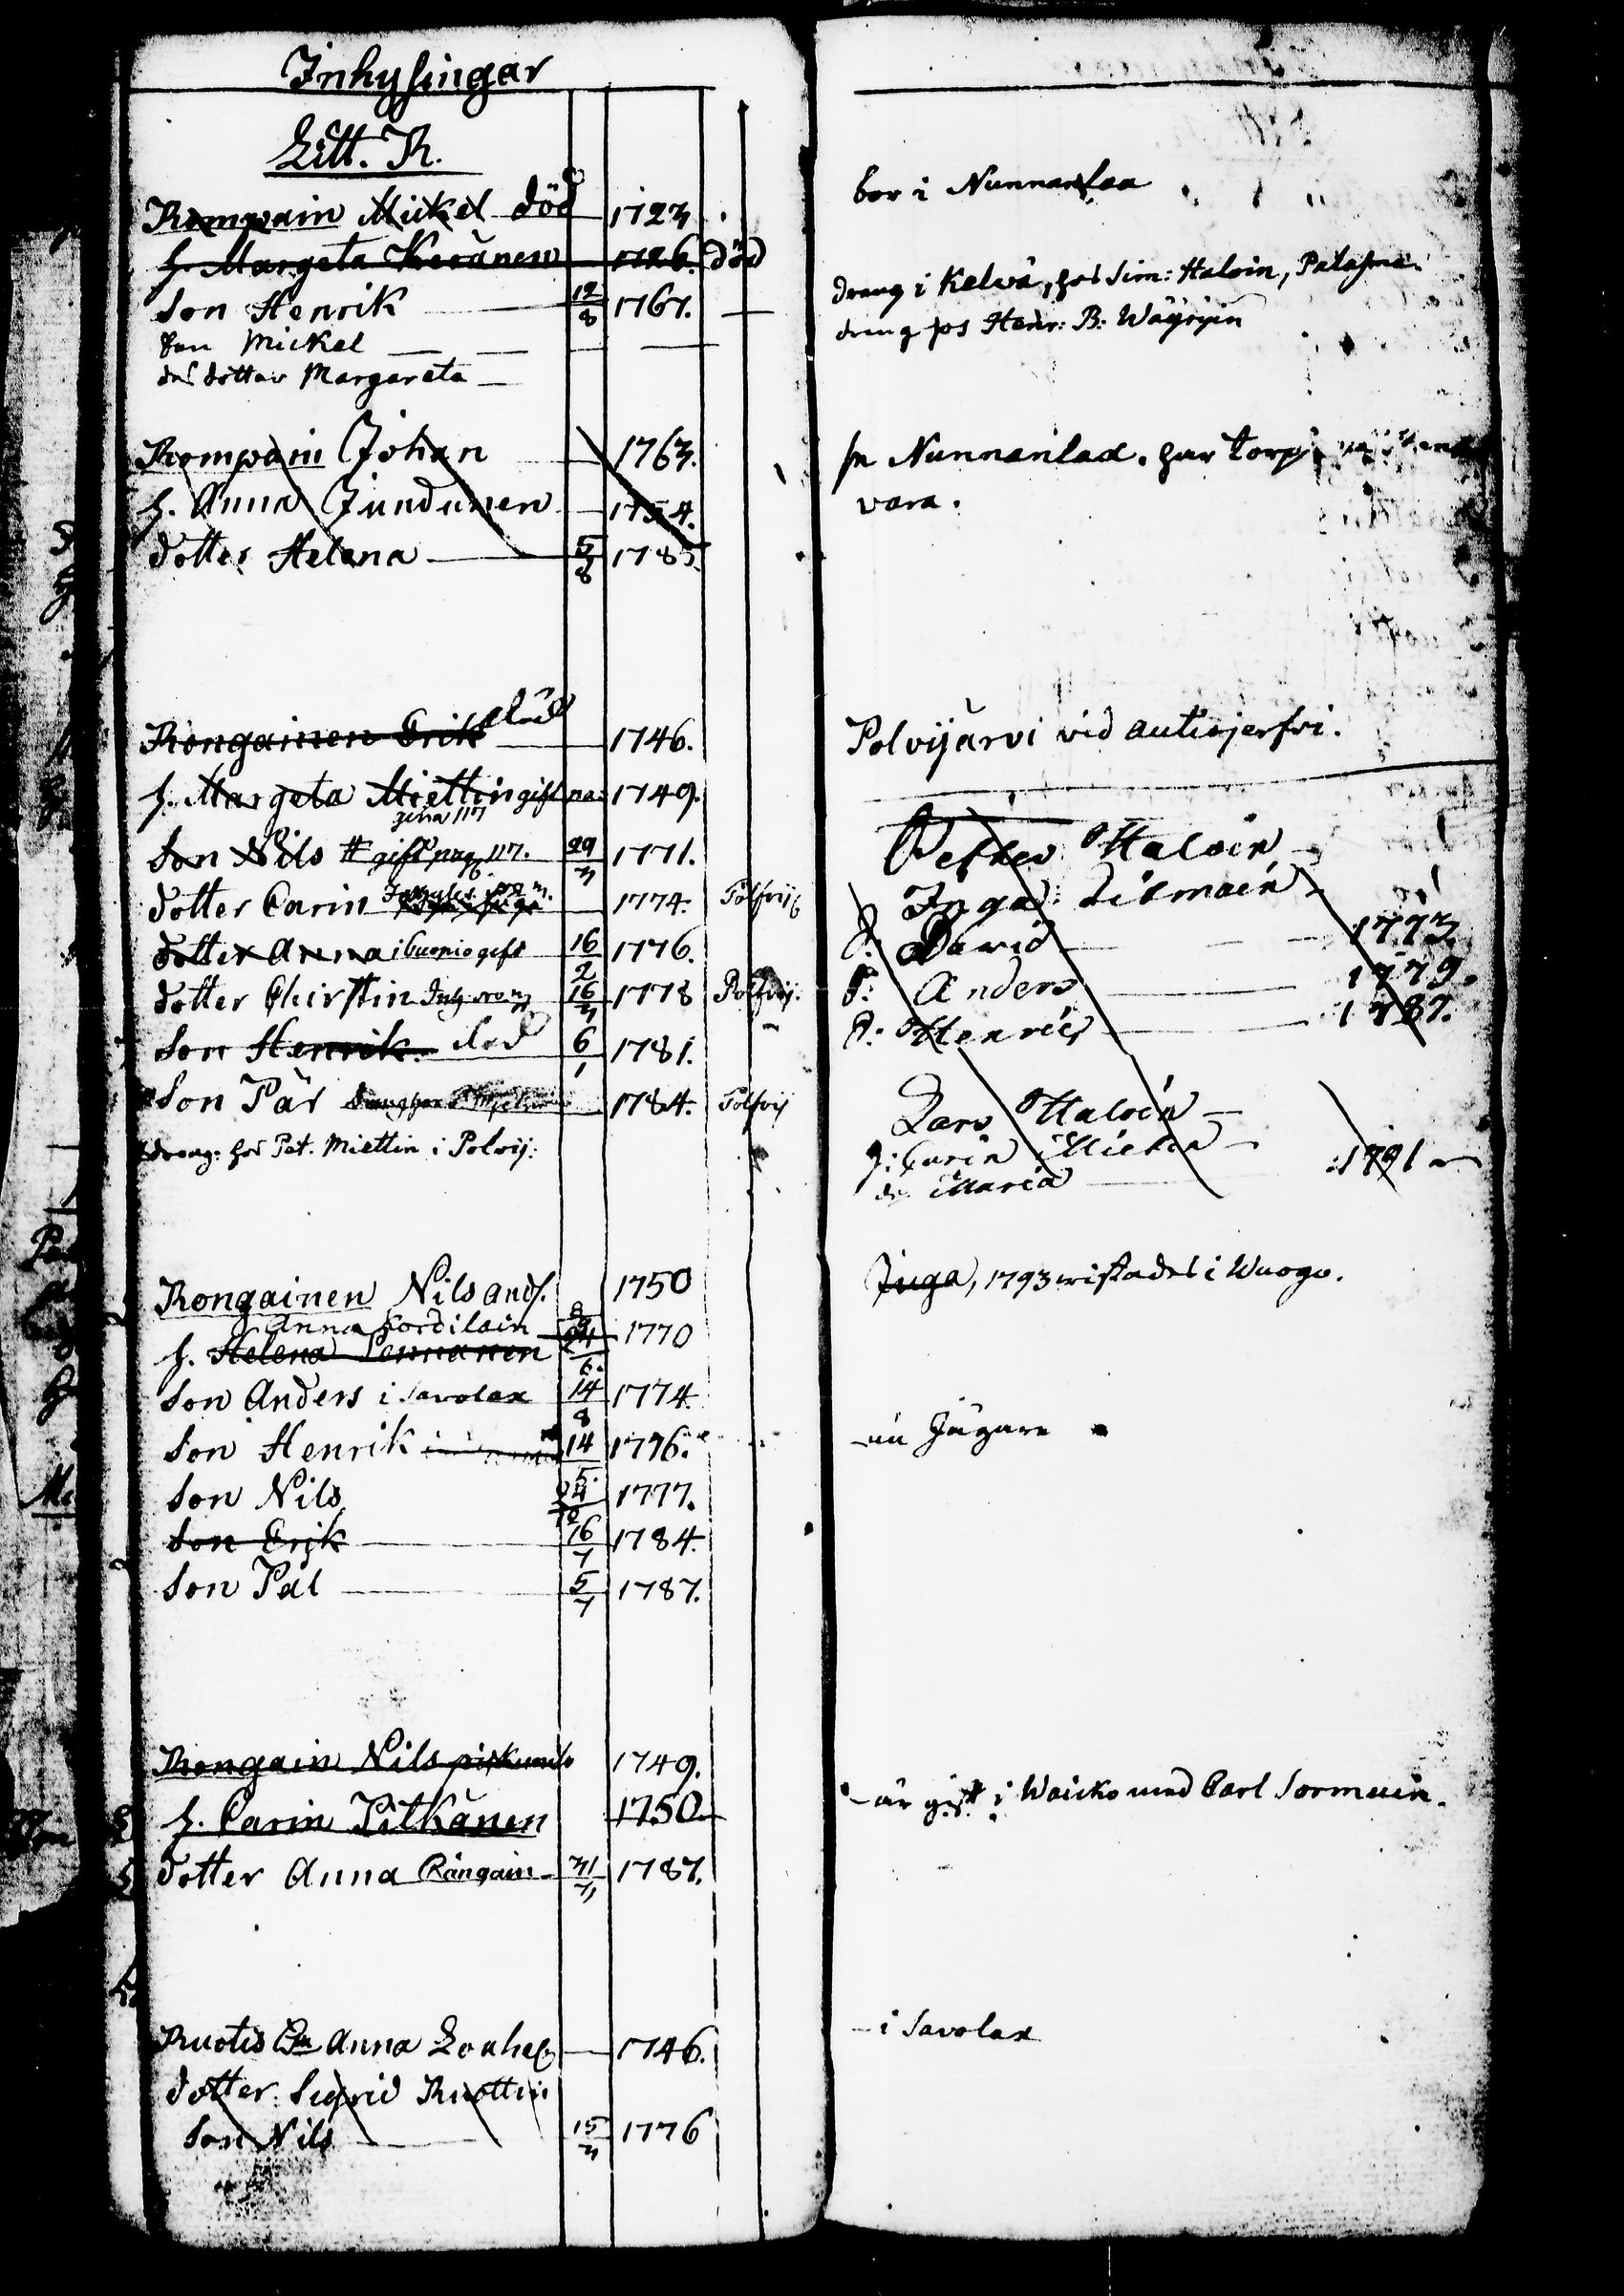 Inhysingar
Litt. R.
Rompain Mickel död 1723
h. Margeta Keränen 1726. död
Son Henrik 12/8 1767.
Son Mickel
des dotter Margareta
Rompain Johan 1763.
h. Anna Jundunen 1754.
dotter Helena 5/8 1785.
Rongainen Erik död 1746.
h. Margeta Miettin gift 1749.
Son Nils gift pag. 117. 29/3 1771.
dotter Carin 1774. Polfvij
dotter Anna i Cuopio gift 16/2 1776.
dotter Christin 16/3 1778 Polfvij.
Son Henrik död 6/1 1781.
Son Pär 1784. Polfvij
dräng hos Pet. Miettin i Polvij:
Rongainen Nils And. 1750
Anna Tordilain 8/9
h. Helena Pennanen 24/6. 1770
Son Anders i Savolax 14/8 1774.
Son Henrik 14/5. 1776.
Son Nils 24/12 1777.
Son Erik 16/7 1784.
Son Pål 5/7 1787.
Rongain Nils 1749.
h. Carin Pitkänen 1750
dotter Anna Rångain 31/3 1787.
Ruotis Enk. Anna 1746.
dotter Sigrid Ruottin
Son Nils 15/3 1776
bor i Nunnanlaa
dräng i Kelvä, hos Sim: Haloin,
dräng hos Henr: B: Wäyryin
Nunnanlax. har torp
vara.
Polvijärvi vid autiojerfvi.
Petter Haloin
Inga:
S. David 1773.
S: Anders 1779.
S: Henric 1787.
Lars Haloin
h: Carin
dr Maria 1791
Juga, 1793 wistades i Wuogo.
nu Jägare
är gift i Waicko med Carl Sormuin.
i Savolax